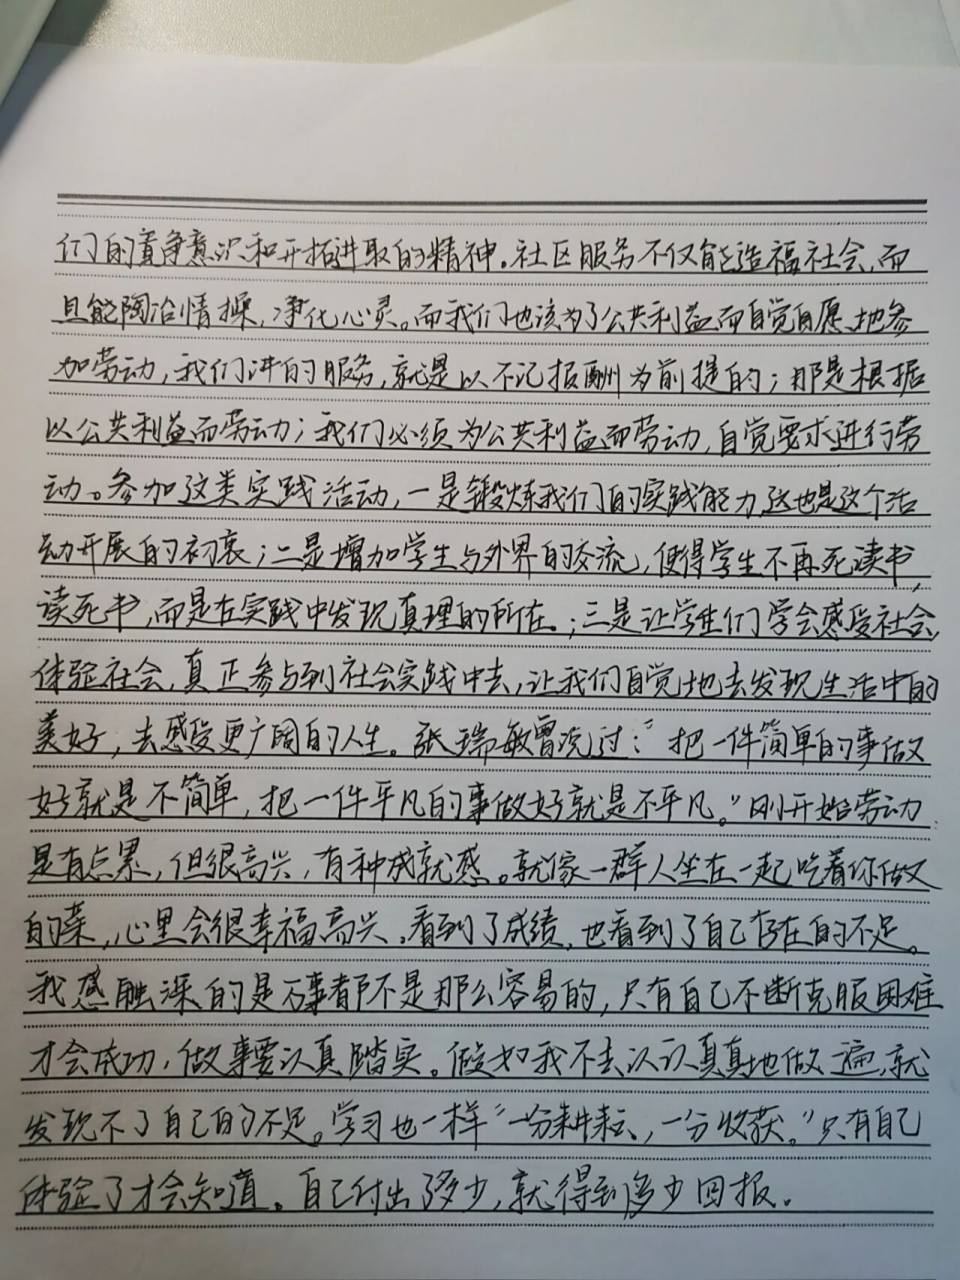 们的竞争意识和开拓进取的精神。社区服务不仅能造福社会,而
且能陶冶情操,净化心灵。而我们也该为了公共利益而自觉自愿地参
加劳动,我们讲的服务,就是以不记报酬为前提的;那是根据
以公共利益而劳动;我们必须为公共利益而劳动,自觉要求进行劳
动。参加这类实践活动,一是锻炼我们的实践能力,这也是这个活
动开展的初衷;二是增加学生与外界的交流,使得学生不再死读书,
读死书,而是在实践中发现真理的所在。;三是让学生们学会感受社会,
体验社会,真正参与到社会实践中去,让我们自觉地去发现生活中的
美好,去感受更广阔的人生。张瑞敏曾说过:“把一件简单的事做
好就是不简单,把一件平凡的事做好就是不平凡。”刚开始劳动
是有点累,但很高兴,有种成就感。就像一群人坐在一起吃着你做
的菜,心里会很幸福高兴。看到了成绩,也看到了自己存在的不足。
我感触深的是万事都不是那么容易的,只有自己不断克服困难
才会成功,做事要认真踏实。假如我不去认认真真地做一遍,就
发现不了自己的不足。学习也一样“一分耕耘,一分收获。”只有自己
体验了才会知道。自己付出了多少,就得到多少回报。